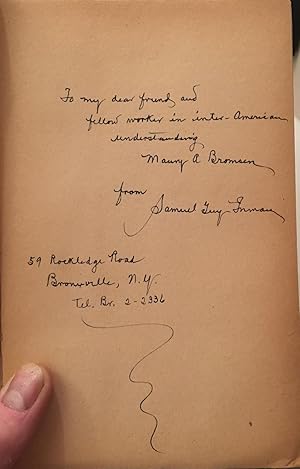 To my dear friend, and
fellow worker in inter-American
understanding,
Maury A Bromsen
from
Samuel Guy Inman
59 Rockledge Road
Bronxville, N.Y.
Tel. Br. 2-2336